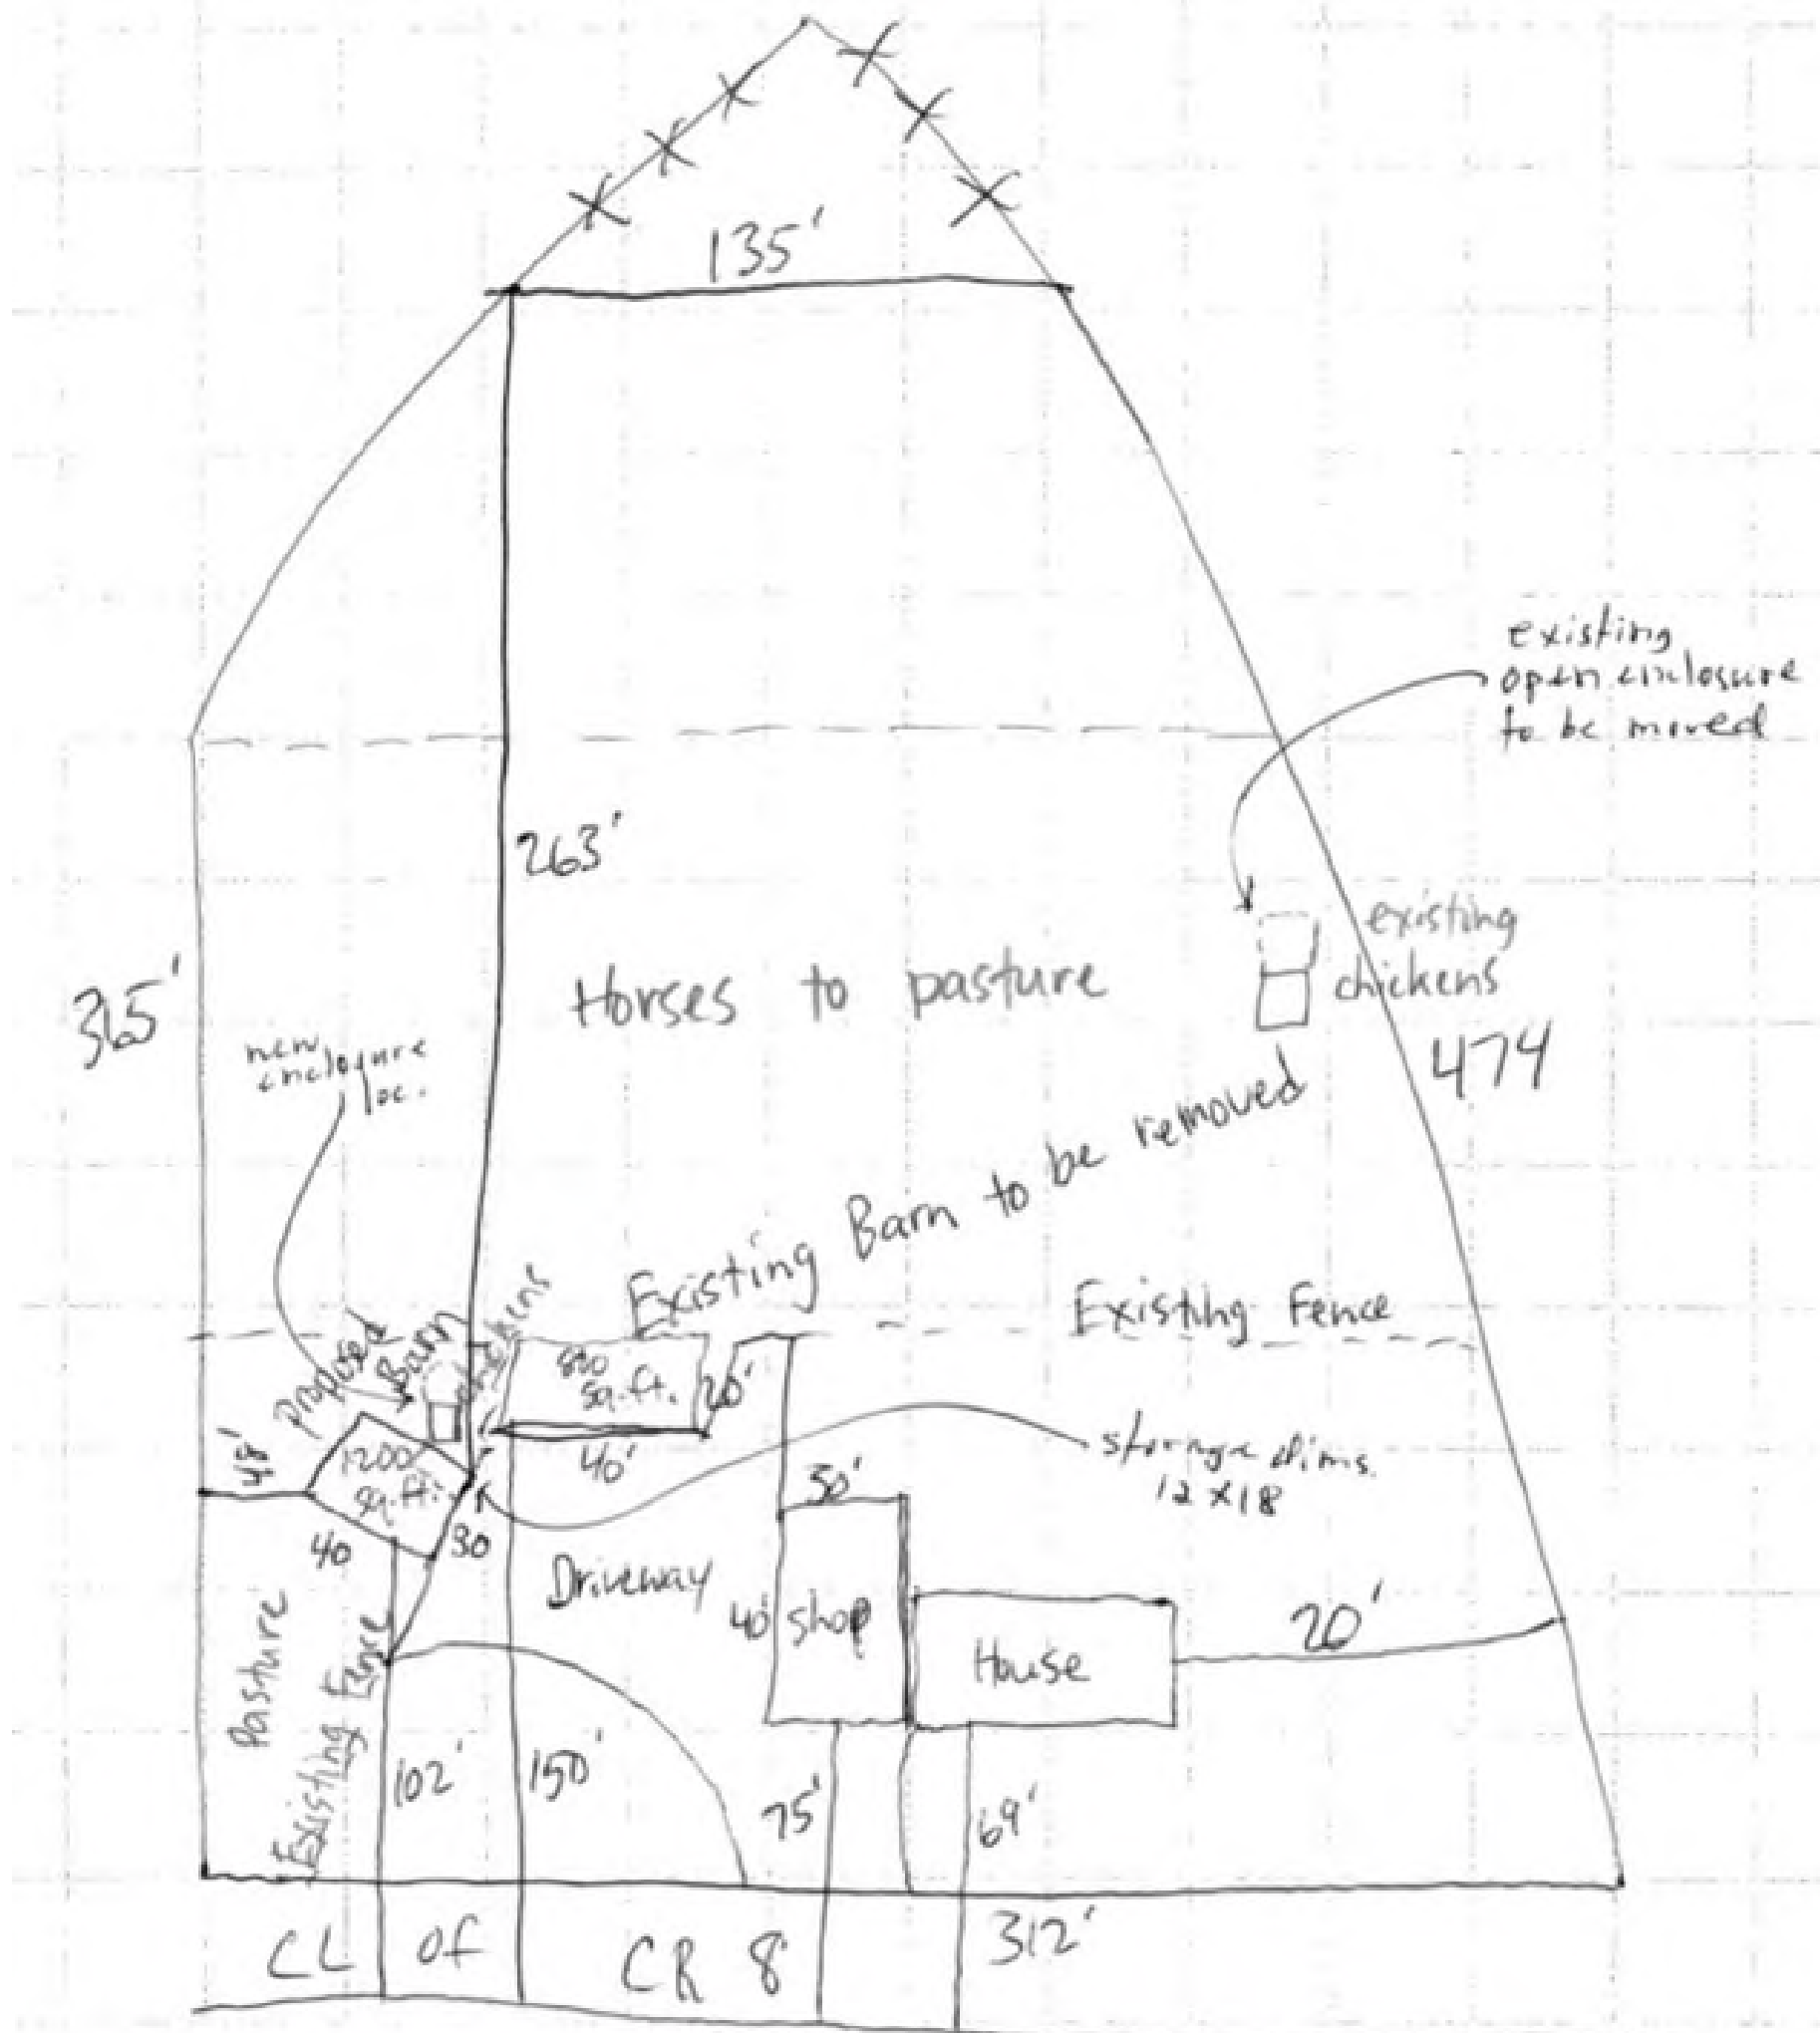 135'
existing
open enclosure
to be moved
263'
existing
chickens
365'
Horses to pasture
474
new
enclosure
loc.
Existing Barn to be removed
Existing Fence
Proposed
Barn
chickens
800
sq. ft.
20'
48'
1200
sq. ft.
40'
storage dims.
12 x 18
40
30
Driveway
40'
shop
House
20'
Pasture
Existing Fence
102'
150'
75'
69'
312'
CL of CR 8